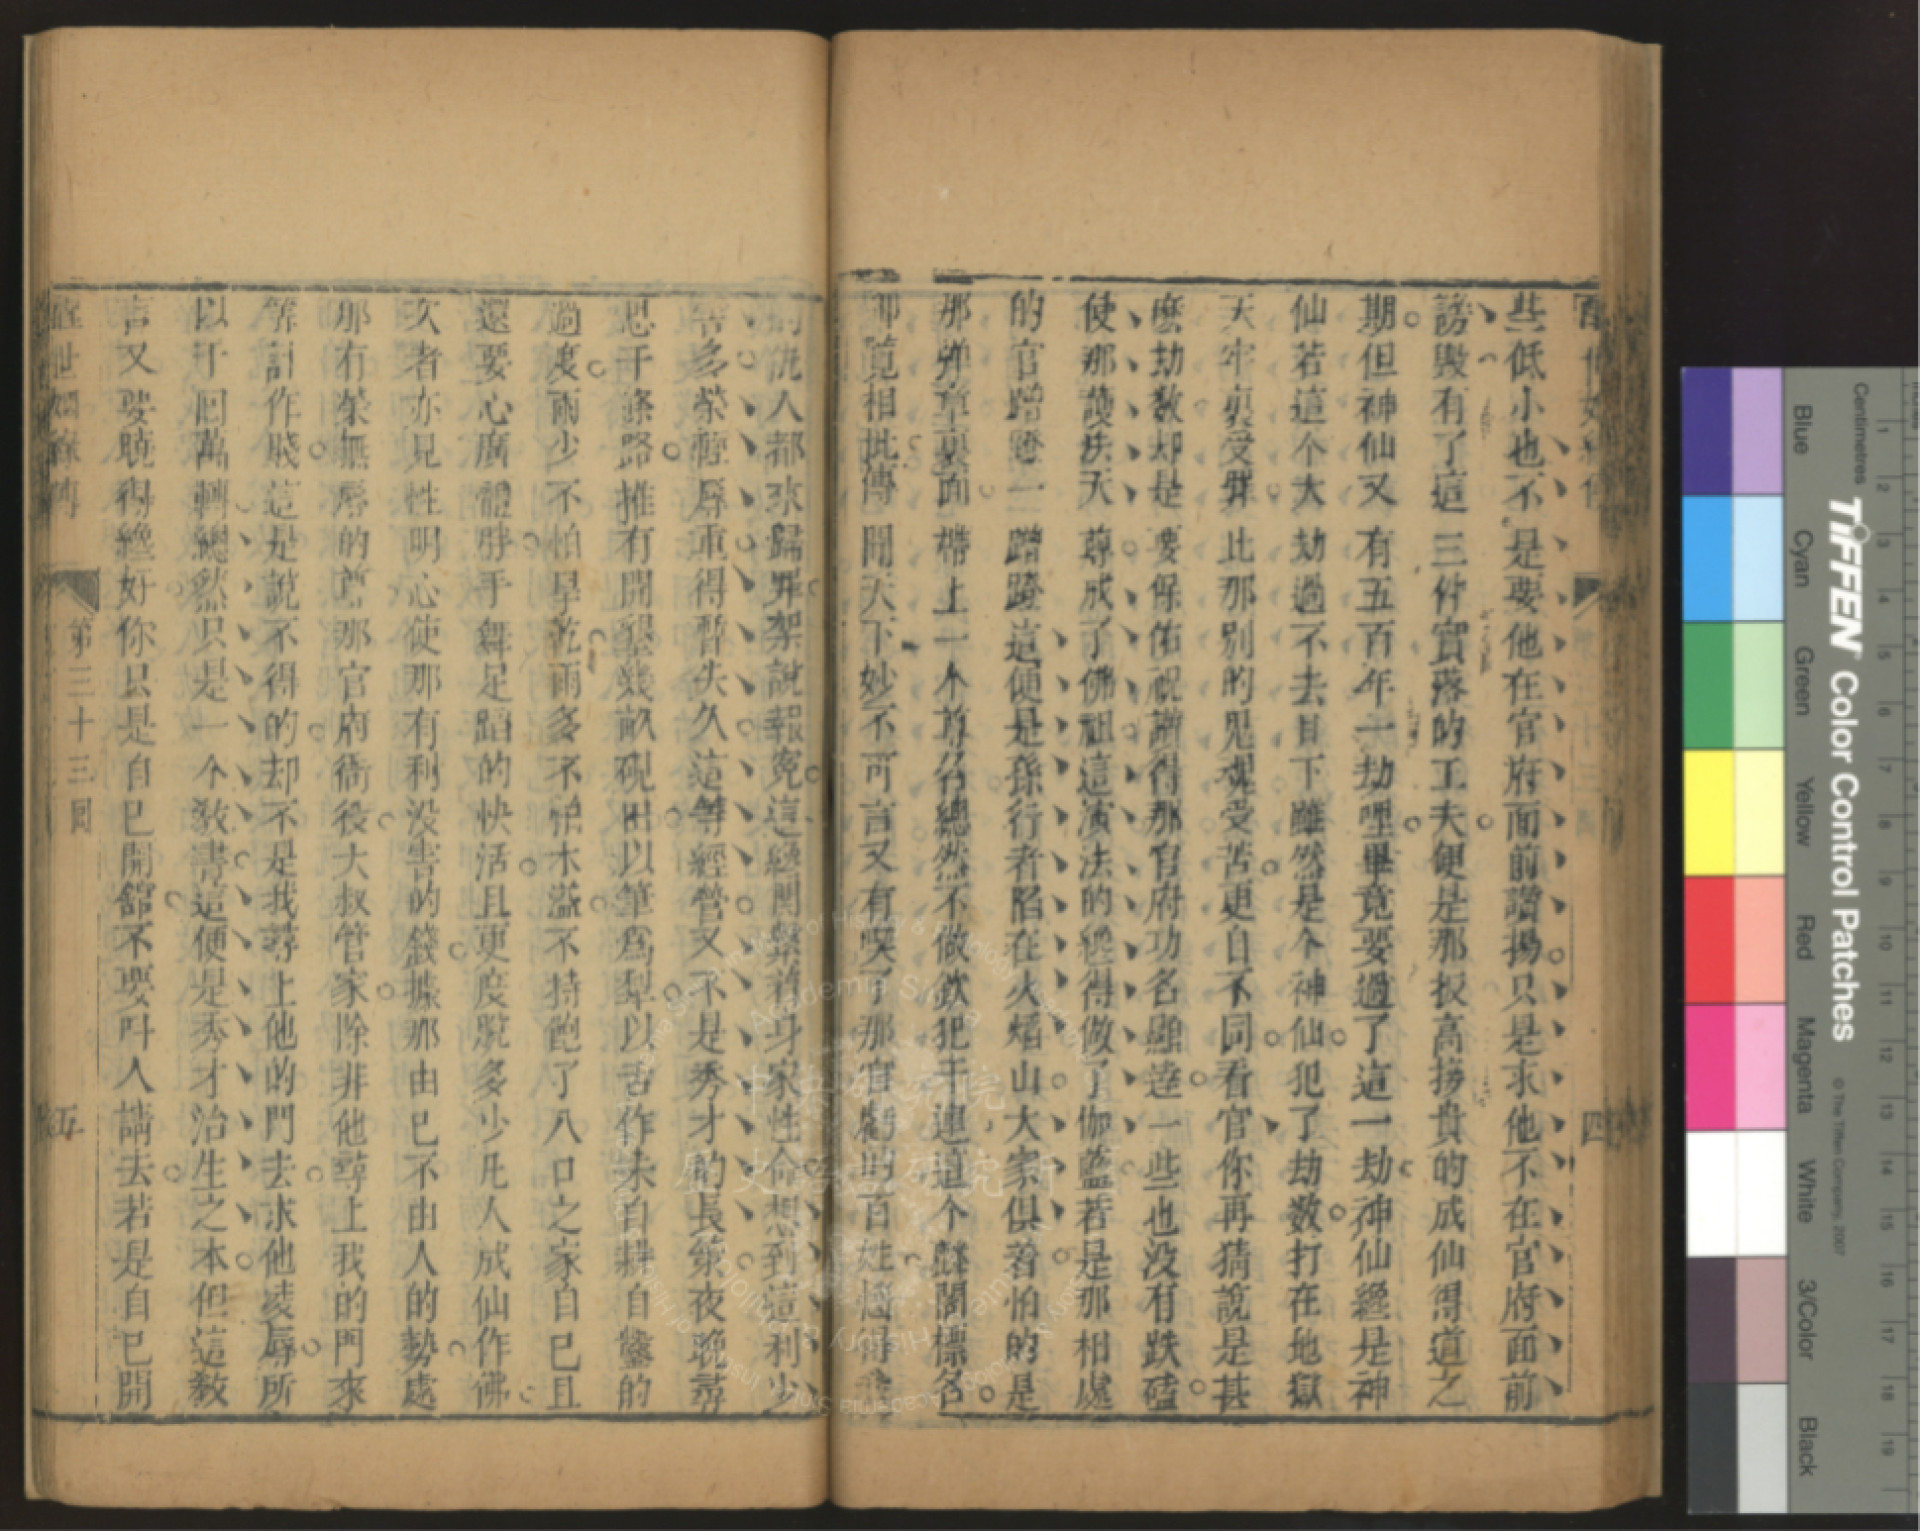 些低小也不是要他在官府面前讚揚只是求他不在官府面前
謗毀有了這三件實落的工夫便是那扳高接貴的成仙得道之
期但神仙又有五百年一劫哩畢竟要過了這一劫神仙纔是神
仙若這个大劫過不去目下雖然是个神仙犯了劫数打在地獄
天牢裏受罪比那别的鬼魂受苦更自不同看官你再猜說是甚
麽劫数却是要保佑祝讚得那官府功名顯達一些也没有跌磕
使那護法天尊成了佛祖這演法的纔得做了伽藍若是那相處
的官蹭蹬一蹭蹬這便是孫行者陷在火熖山大家俱著怕的是
那彈章裏面帶上一个尊名總然不做欽犯干連這个聲聞標名
御覽相批傳聞天下妙不可言又有哭了那官虧的百姓
的仇人都來歸罪架說報寃這纔関係着身家性命想到這利少
害多榮輕辱重得暫失久這等經營又不是秀才的長策夜晩尋
思千條路惟有開墾幾畝硯田以筆爲犁以舌作耒自耕自鑿的
過度雨少不怕旱乾雨多不怕水溢不特飽了八口之家自己且
還要心廣體胖手舞足蹈的快活且更度脫多少凡人成仙作佛
次者亦見性明心使那有利没害的錢據那由已不由人的勢處
那有榮無辱的尊那官府衙役大叔管家除非他尋上我的門來
筭計作賤這是說不得的却不是我尋上他的門去求他凌辱所
以千囘萬轉總然只是一个敎書這便是秀才治生之本但這敎
書又要曉得纔好你只是自己開館不要叫人請去若是自己開
醒世姻緣傳
第三十三囘
五
四
TIFFEN Color Control Patches
© The Tiffen Company, 2007
Centimetres
Blue
Cyan
Green
Yellow
Red
Magenta
White
3/Color
Black